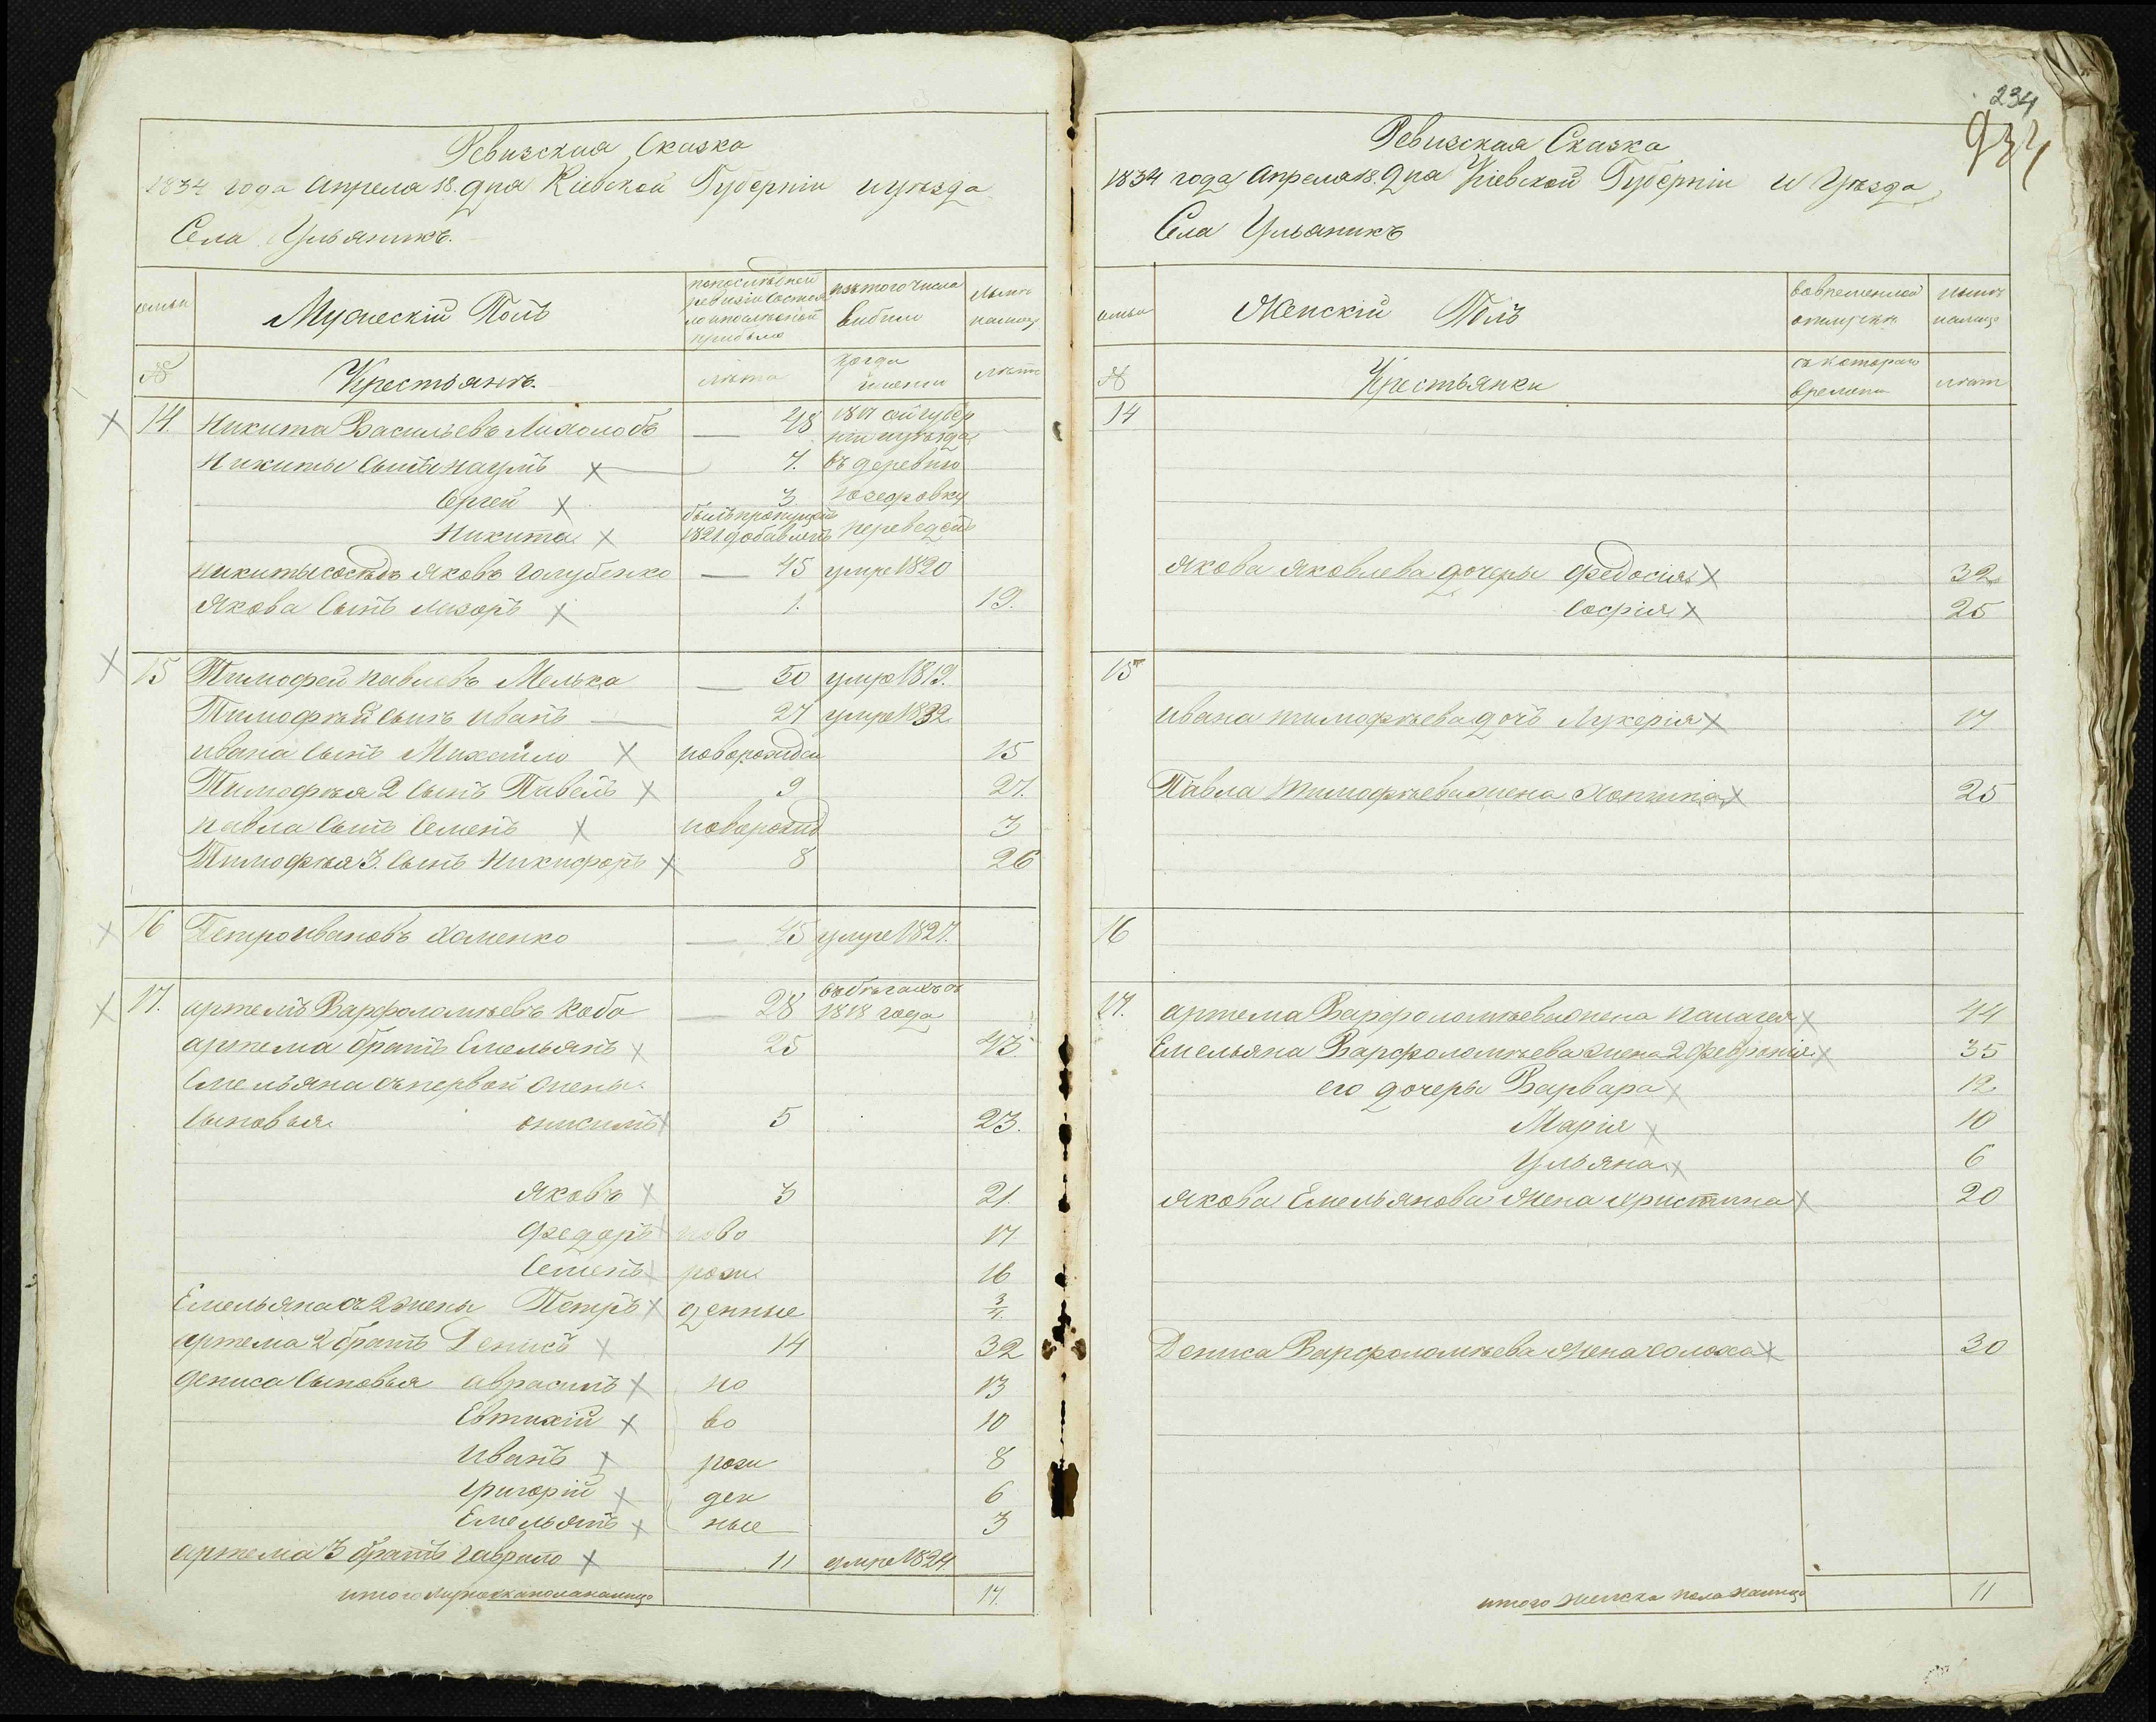 234
234
Ревизская Сказка
1834 года Апреля 18. дня Кіевской Губерніи и уѣзда
Села Ульяникъ.
семьи
Мужескій Полъ
по последней
ревизіи состоя
ло и после оной
прибыло
изъ того числа
выбыли
Ныне
налицо
№
Крестьянъ.
лѣта
Когда
именно
лѣтъ
14 Никита Васильевъ 48 1817 сей губер
ніи и уѣзда
Никиты сынъ Наумъ 7. въ деревню
Сергей 3 Юзефовку
Никита былъ пропущенъ 1821 добавленъ переведенъ
Никиты соседъ Яковъ Голубенко 45 умре 1820
Якова сынъ Лазоръ 1. 19.
15 Тимофей Павловъ Мелька 50 умре 1819.
Тимофѣй сынъ Иванъ 27 умре 1832
Ивана сынъ Михайло новорожден 15
Тимофѣя 2 сынъ Павелъ 9 27.
Павла сынъ Семенъ новорожд 3
Тимофѣя 3. сынъ Никифоръ 8 26
16 Петро Ивановъ Хоменко 45 умре 1827.
17. Артемъ Варфоломѣевъ Коба 28 въ бѣгахъ съ
1818 года
Артема братъ Емельянъ 25 43
Емельяна съ первой жены
сыновья. Онисимъ 5 23.
Яковъ 3 21.
Федоръ ново 17
Семенъ рож 16
Емельяна съ 2 жены Петръ денные
Артема 2 братъ Денисъ 14 32
Дениса сыновья Аврасимъ но 13
Евтихій во 10
Иванъ рож 8
Григорій ден 6
Емельянъ ные 3
Артема 3 братъ Гаврило 11 умре 1824
итого мужеска пола налицо 17.
Ревизская Сказка
1834 года Апреля 18. Дня Кіевской Губерніи и Уѣзда
Села Ульяникъ
семьи
Женскій Полъ
во временной
отлучки
Ныне
налицо
№
Крестьянки
съ которого
времени
лѣт
14
Якова Яковлева дочеры Федосія 32
Софія 25
15
Ивана Тимофѣева дочь Лукерія 17
Павла Тимофѣева жена 25
16
17. Артема Варфоломѣева жена Палагея 44
Емельяна Варфоломѣева жена 2 Февронія 35
его дочеры Варвара 12
Марія 10
Ульяна 6
Якова Емельянова жена Христина 20
Дениса Варфоломѣева жена 30
итого женска пола налицо 11